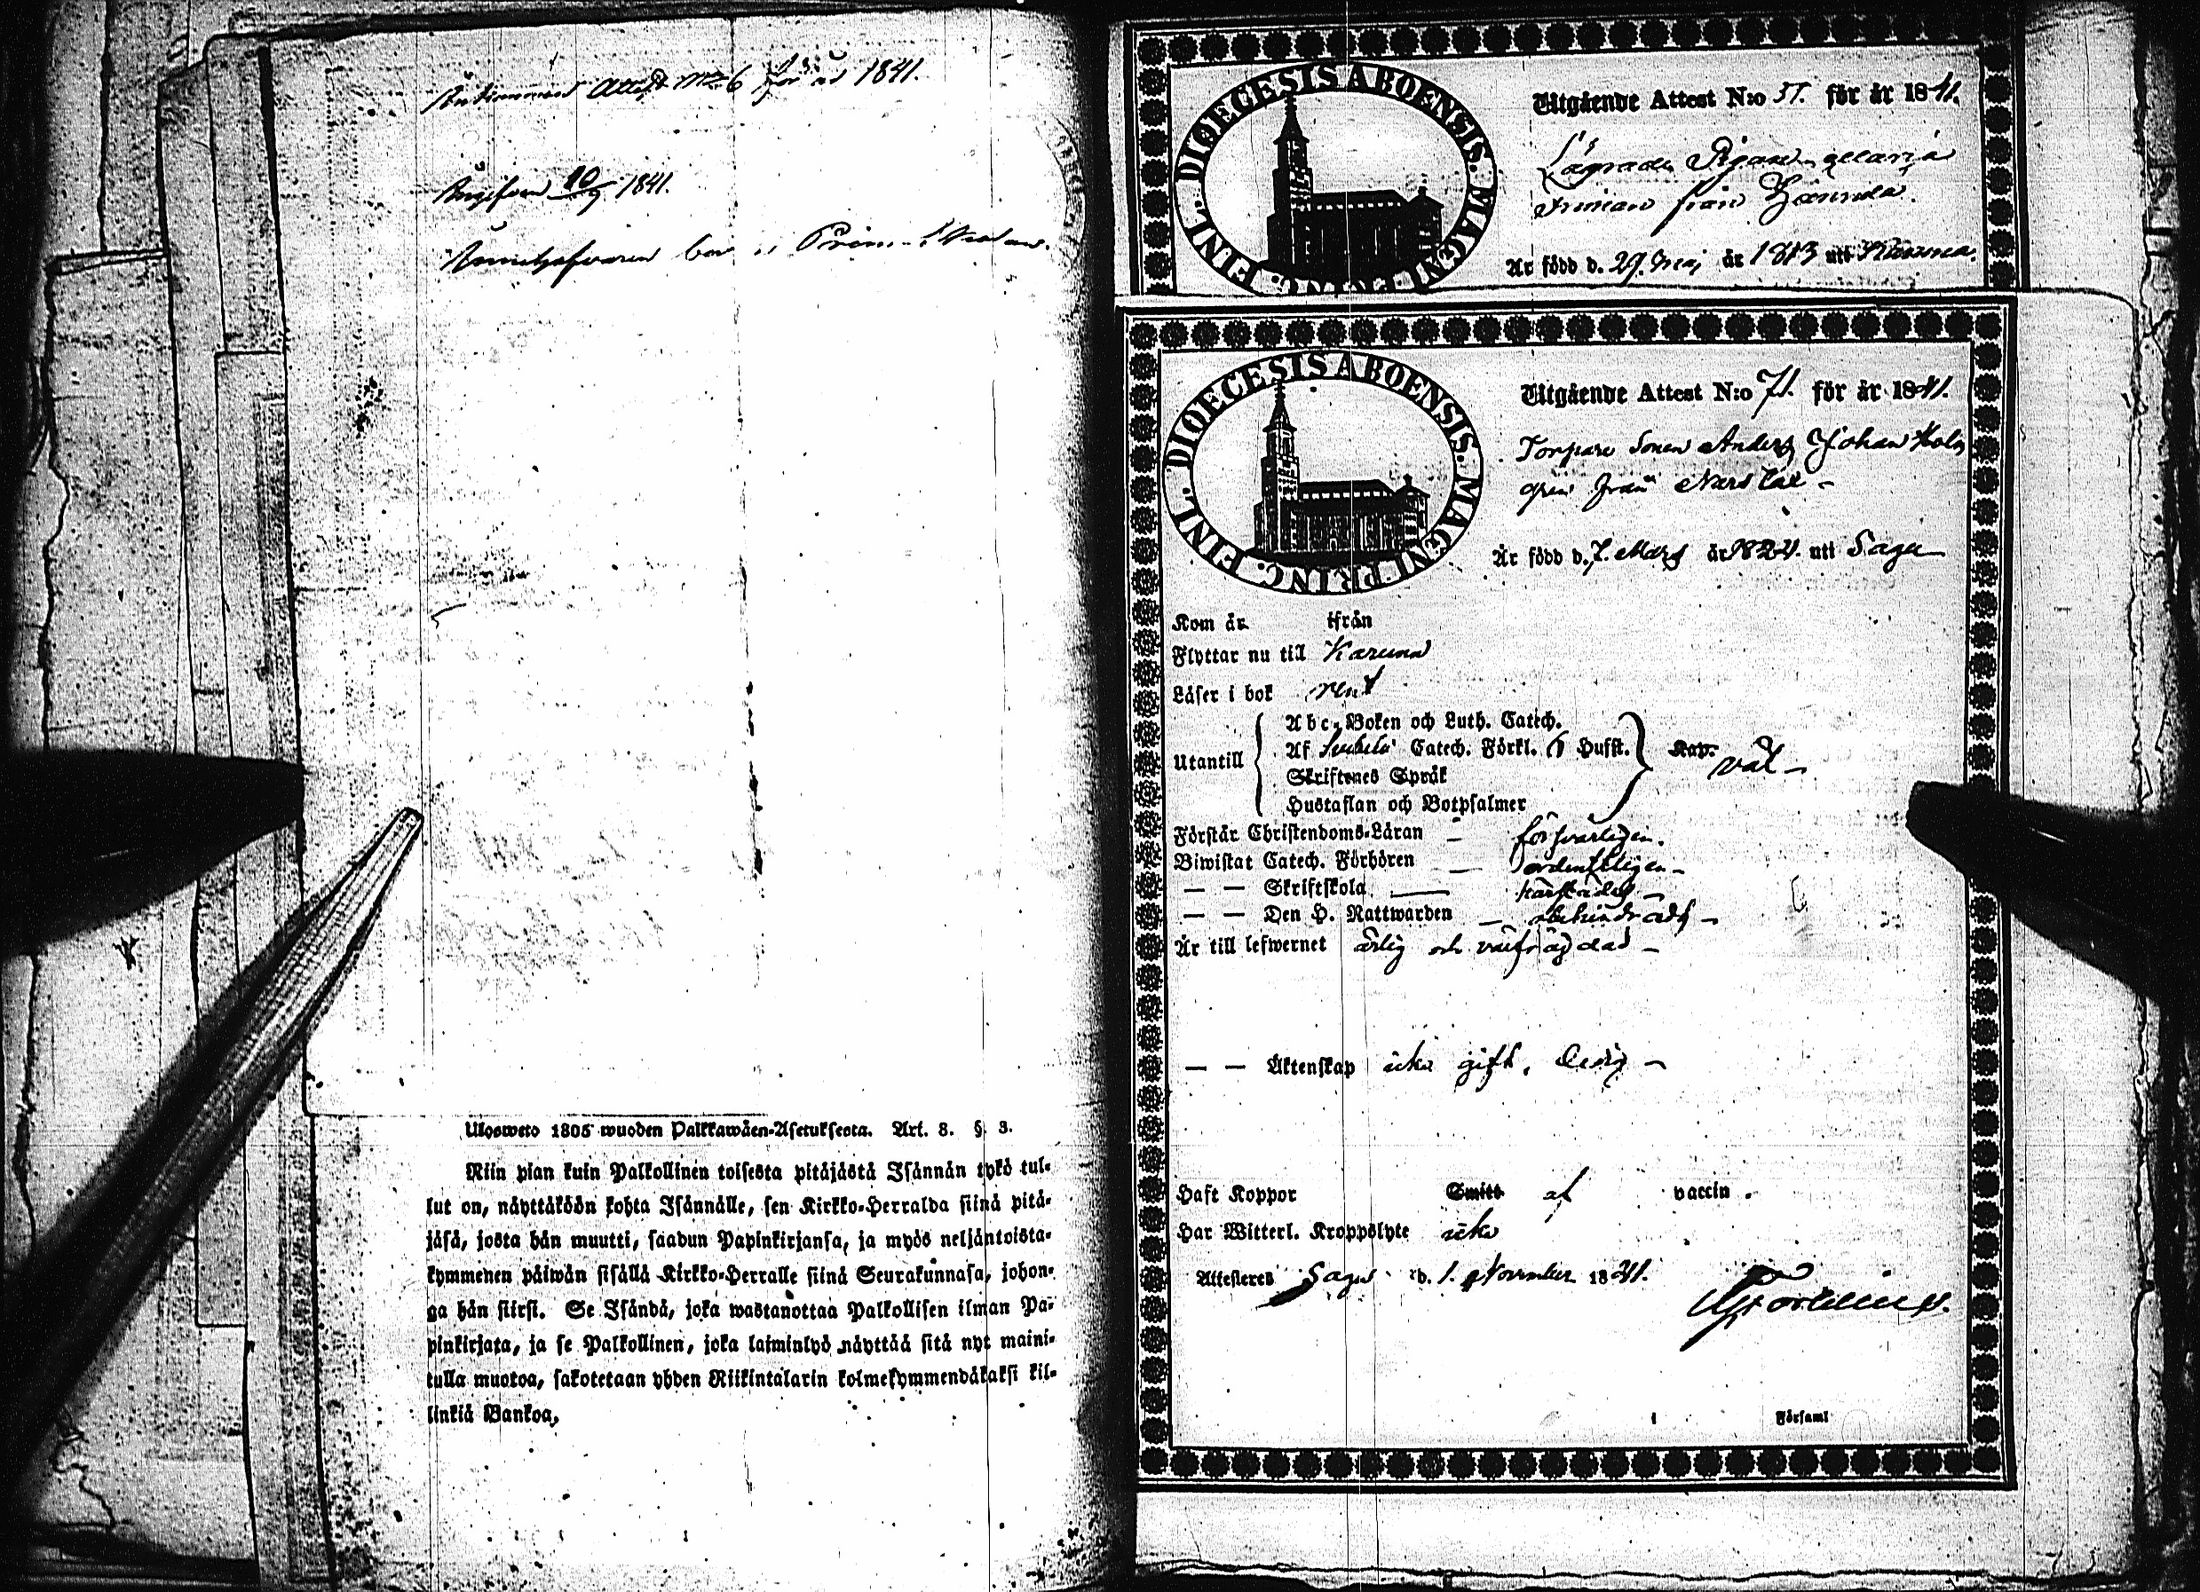 Attest No 6 för år 1841.
10/9 1841.
bor
Ulosweto 1805 wuoden Palkkawäen-Asetuksesta. Art. 8. § 3.
Niin pian kuin Palkollinen toisesta pitäjästä Isännän tykö tul-
lut on, näyttäköön kohta Isännälle, sen Kirkko-Herralda siinä pitä-
jäsä, josta hän muutti, saadun Papinkirjansa, ja myös neljäntoista-
kymmenen päiwän sisällä Kirkko-Herralle siinä Seurakunnasa, johon-
ga hän siirsi. Se Isändä, joka wastanottaa Palkollisen ilman Pa-
pinkirjata, ja se Palkollinen, joka laiminlyö näyttää sitä nyt maini-
tulla muotoa, sakotetaan yhden Riikintalarin kolmekymmendäkaksi kil-
linkiä Bankoa,
DIOECESIS ABOENSIS. MAGNI. PRINC. FINL.
Utgående Attest N:o 57. för år 1841.
Pigan Maria
från
Är född d. 29. Maj år 1813 uti Karuna.
DIOECESIS ABOENSIS. MAGNI. PRINC. FINL.
Utgående Attest N:o 71. för år 1841.
Torpare Sonen Anders Johan Holm
gren från
Är född d. 7. Mars år 1824. uti Sagu
Kom år ifrån
Flyttar nu till Karuna
Läser i bok rent
Utantill
Abc-Boken och Luth. Catech.
Af Svebelii Catech. Förkl. 6 Hufst.
Skriftenes Språk
Hustaflan och Botpsalmer
Kap. väl
Förstår Christendoms-Läran försvarligen.
Biwistat Catech. Förhören ordentligen
— — Skriftskola
— — Den H. Nattwarden obehindradt
Är till lefwernet ärlig och välfrägdad
— — Äktenskap icke gift, ledig
Haft Koppor Smitt af vaccin.
Har Witterl. Kroppslyte icke
Attesteres Sagu d. 1. November 1841.
Församl